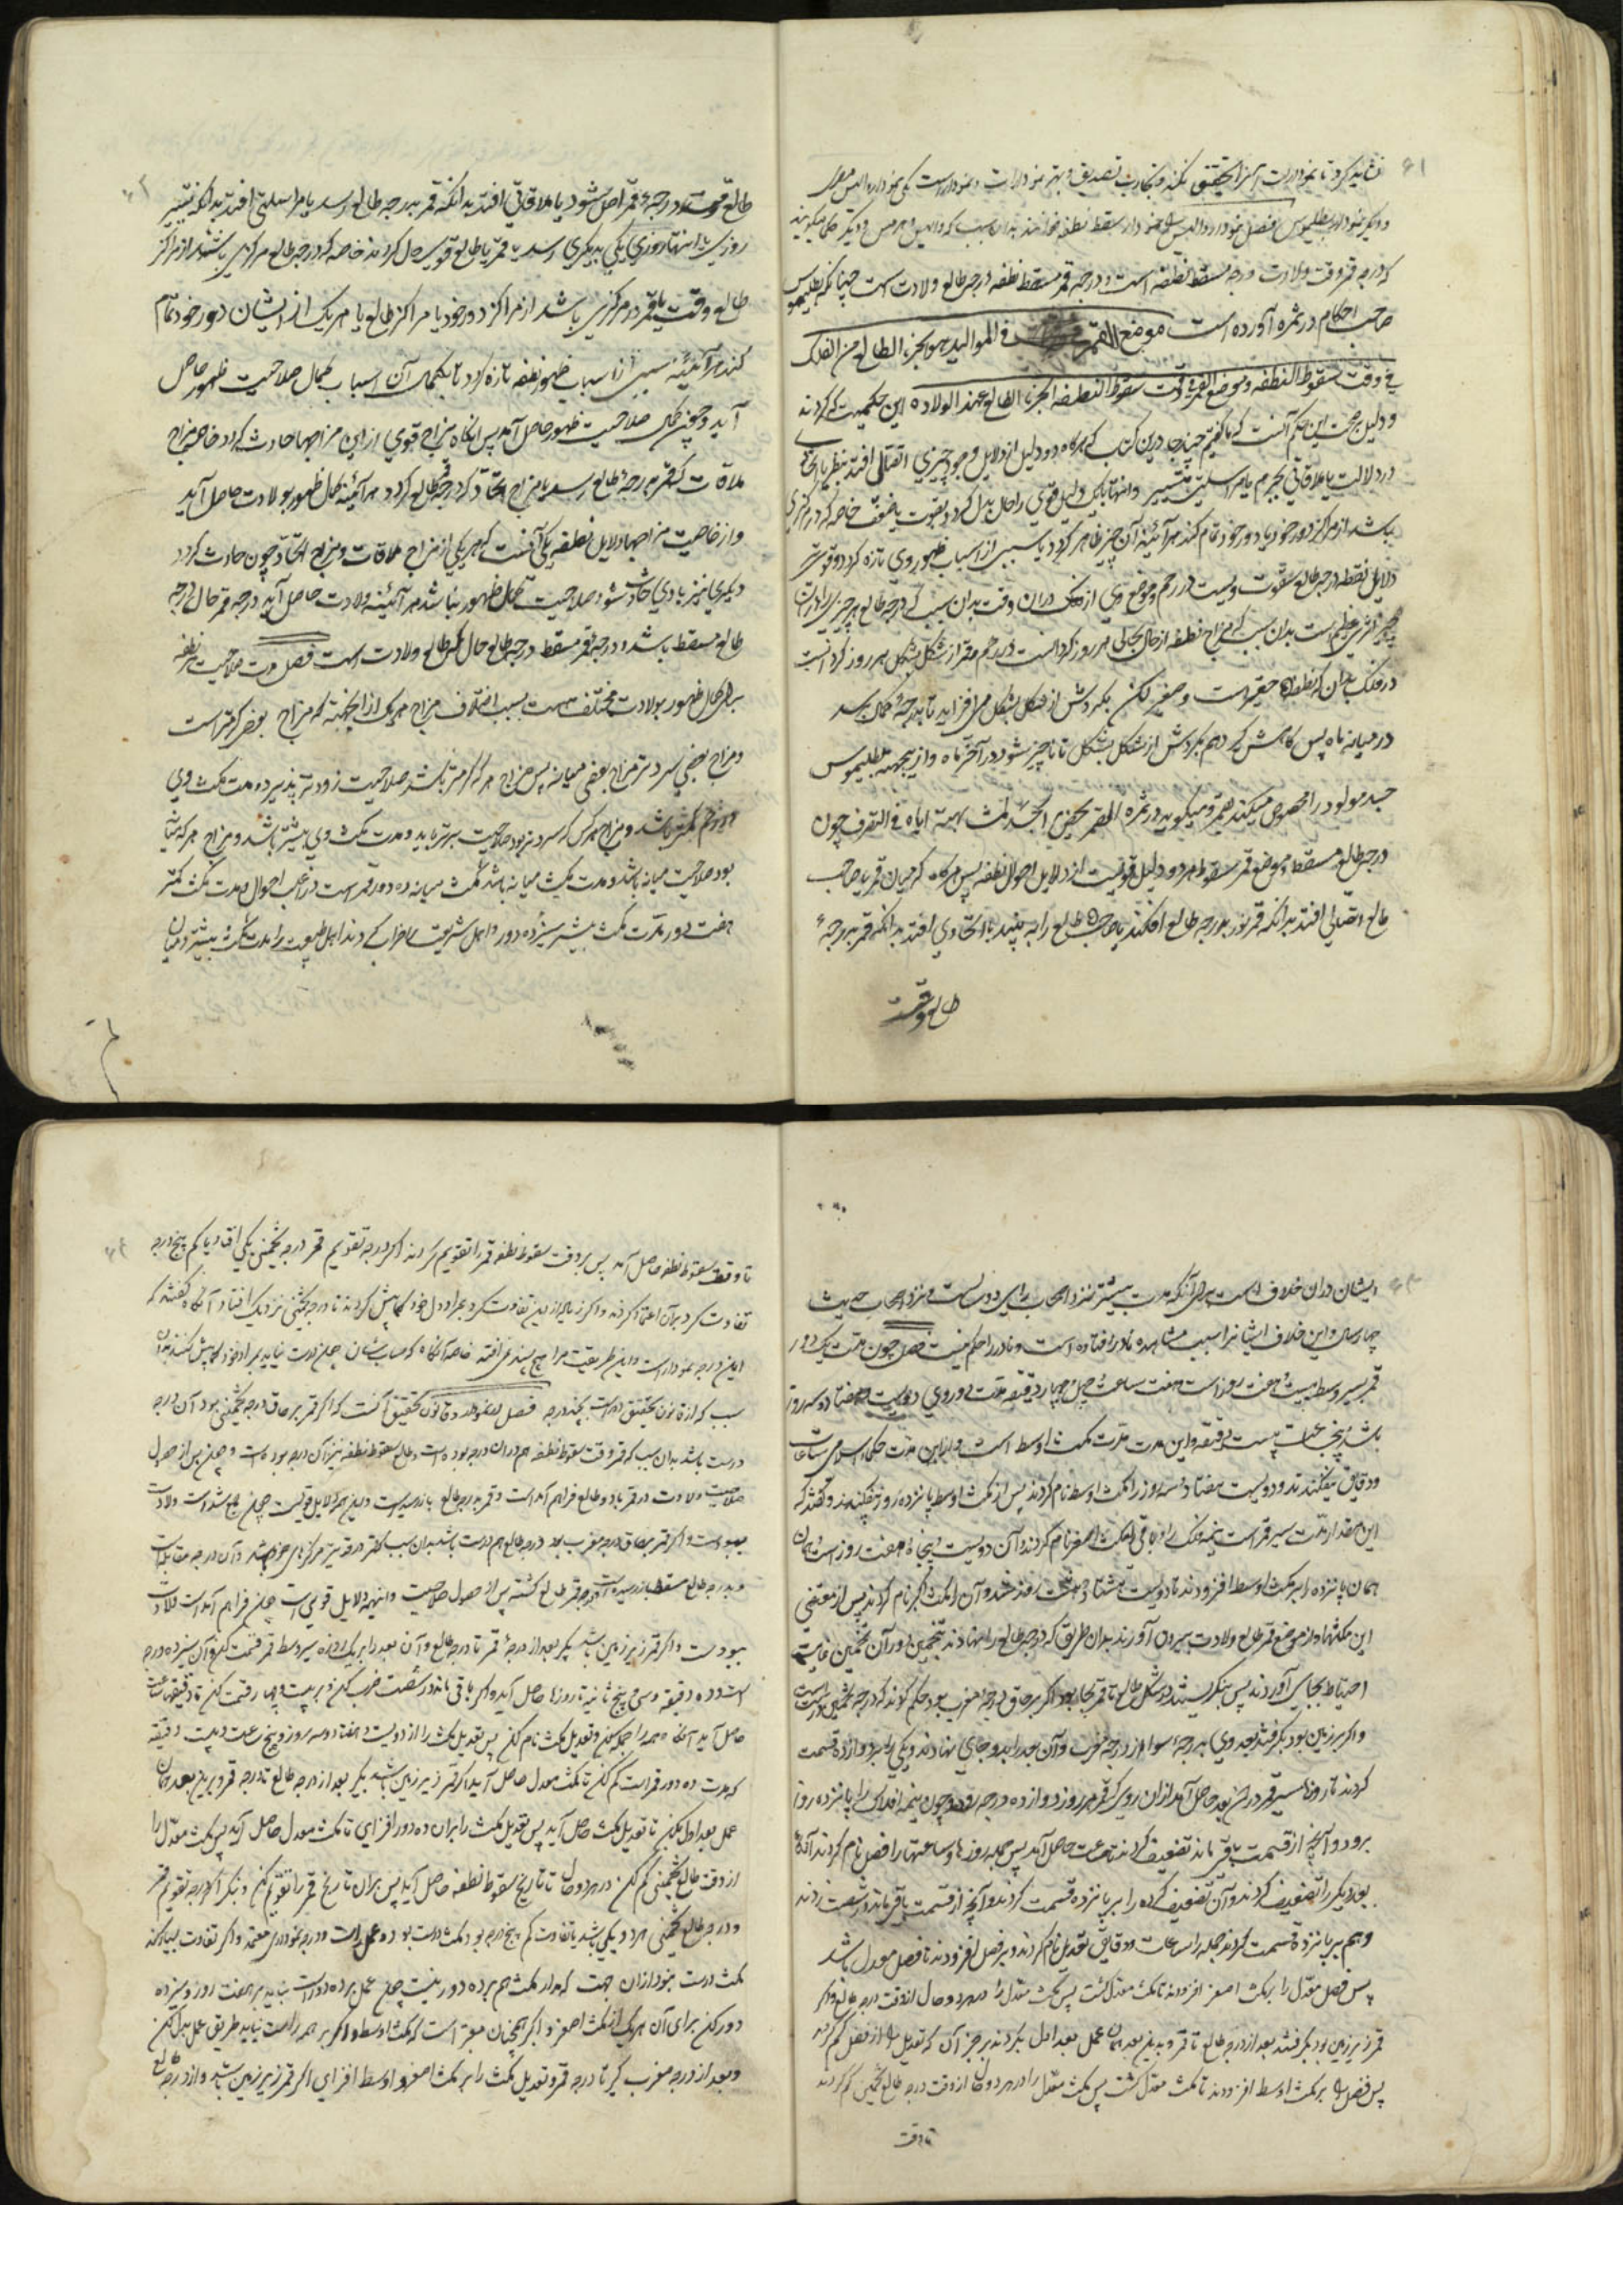 نشاید کرد تا نمودارت آنرا تحقیق نکند و تجارب تصدیق و بهتر نمودارات دو نمودار است یکی نمودار والیس مصری
و دیگر نمودار بطلیموس فصل نمودار والیس را نمودار مسقط نطفه خوانند بدان سبب که والیس و هرمس و دیگر حکما میگویند
که درجه قمر وقت ولادت درجه مسقط نطفه است و درجه قمر مسقط نطفه درجه طالع ولادت است چنانکه بطلیموس
صاحب احکام در ثمره آورده است موضع القمر فی الموالید هو الجزء الطالع من الفلک
فی وقت سقوط النطفه و موضع القمر فی وقت سقوط النطفه الجزء الطالع عند الولاده این حکمیست که کردند
و دلیل صحت این حکم آنست که ما گفتیم چند جا درین کتاب که هرگاه دو دلیل از دلایل وجود چیزی اتصالی افتد بنظر یا اتحاد
در دلالت یا ملاقاتی بجرم یا مراسلتی بتسییر و انتها تا یک دلیل قوی را حال بدل گردد بقوت یا ضعف خاصه که در مرکزی
باشد از مراکز دور خود یا دور خود تمام کند هرآئینه آن چیز ظاهر گردد یا سببی از اسباب ظهور وی تازه گردد و قوی‌تر
دلایل نطفه درجه طالع سقوط ویست در رحم و موضع وی از فلک دران وقت بدان سبب که درجه طالع هر چیزی را دران
چیز اثری عظیم است بدان سبب که مزاج نطفه از حال بحالی هر روز گرداست در رحم و قمر از شکل بشکل هر روز گردانست
در فلک بدان که نطفه حقیر است و صغیر لکن بگردش از شکل بشکل می افزاید تا بدرجه کمال برسد
در میانه ماه پس کاهش گیرد هم بگردش از شکل بشکل تا ناچیز شود در آخر ماه و ازینجهت بطلیموس
جسد مولود را مخصوص میکند بقمر و میگوید در ثمره القمر الجسد لمشابهته ایاه فی التصرف چون
درجه طالع مسقط و موضع قمر سقوط هر دو دلیل قویست از دلایل احوال نطفه پس هرگاه که میان قمر یا صاحب
طالع اتصالی افتد بدانکه قمر نور بدرجه طالع افکند یا صاحب طالع را به بیند یا اتحادی افتد بدانکه قمر بدرجه
طالع وقت
طالع وقت در درجه قمر اصل شود یا ملاقاتی افتد بدانکه قمر بدرجه طالع رسد یا مراسلتی افتد بدانکه بتسییر
روزی یا انتها روزی یکی بدیگری رسد یا قمر یا طالع قوی حال گردند خاصه که درجه طالع مرکزی باشد از مراکز
طالع وقت یا قمر در مرکزی باشد از مراکز دور خود یا مراکز طالع یا هر یک از ایشان دور خود تمام
کند هرآئینه سببی از اسباب ظهور نطفه تازه گردد تا بکمال آن اسباب کمال صلاحیت ظهور حاصل
آید و چون کمال صلاحیت ظهور حاصل آمد پس آنگاه مزاج قوی از این مزاجها حادث گردد خاصه مزاج
ملاقات که قمر بدرجه طالع رسد یا مزاج اتحاد که درجه طالع گردد هرآئینه کمال ظهور بولادت حاصل آید
و از خاصیت مزاجها دلایل نطفه یکی آنست که هر یکی از مزاج ملاقات و مزاج اتحاد چون حادث گردد
دیگری نیز با وی حادث شود صلاحیت کمال ظهور بباشد هرآئینه ولادت حاصل آید درجه قمر حال درجه
طالع مسقط باشد و درجه قمر مسقط درجه طالع حال طالع ولادت است فصل مدت صلاحیت نطفه
برای کمال ظهور بولادت مختلف است بسبب اختلاف مزاج هر یک ازینجهته که مزاج بعضی گرمتر است
و مزاج بعضی سردتر مزاج بعضی میانه پس مزاج هر که گرمتر باشد صلاحیت زودتر پذیرد و مدت مکث وی
در رحم کمتر باشد و مزاج هر کس که سردتر بود صلاحیت دیرتر یابد و مدت مکث وی بیشتر باشد و مزاج هر که میانه
بود صلاحیت میانه باشد و مدت مکث میانه باشد مکث میانه ده دور قمر است در اغلب احوال و مدت مکث کمتر
هفت دور مدت مکث بیشتر سیزده دور و اهل شریعت اعراض کردند از اهل طبیعت را مدت مکث بیشتر و میان
ایشان دران خلاف است برای آنکه مدت بیشتر نزد اصحاب رای دو سالست و نزد اصحاب حدیث
چهار سال و این خلاف ایشانرا سبب مشاهده نادر افتاده است و نادر را حکم نیست فصل چون مدت یک دور
قمر بسیر وسط بیست و هفت روز است هفت ساعت چهل و چهار دقیقه مدت ده دور وی دویست و هفتاد و سه روز
باشد پنج ساعت بیست دقیقه و این مدت مدت مکث اوسط است و بنابرین مدت حکما اسلامی ساعات
و دقایق بیفکندند و دویست هفتاد و سه روز را مکث اوسط نام کردند پس از مکث اوسط پانزده روز بیفکندند و گفتند که
این مقدار مدت سیر قمر است نیمه فلک را و باقی را مکث اصغر نام کردند و آن دویست و پنجاه و هشت روز است و همان
همان پانزده را بر مکث اوسط افزودند تا دویست و هشتاد و هشت روز شد و آن را مکث اکبر نام کردند پس از مقتضی
این مکثها و از موضع قمر طالع ولادت بیرون آورند بدان طریق که درجه طالع را نهادند بتخمین و در آن تخمین غایت
احتیاط بجای آوردند پس بنگریستند در شکل طالع تا قمر کجا بود اگر بر حاق درجه مغرب بود حکم کردند که درجه تخمین درست است
و اگر بر زمین بود بگرفتند بعد وی بدرجه سوا از درجه مغرب و آن بعد را بدو جای نهادند و یکی را بر دوازده قسمت
کردند تا روزها مسیر قمر در آن بعد حاصل آمد از ان روی که قمر هر روز دوازده درجه رود و چون نیمه افلاک را پانزده روز
برود و آنچه از قسمت باقی ماند تضعیف کردند تا ساعت حاصل آمد پس جمله روزها و ساعتها را فصل نام کردند آنگاه
بعد دیگر را تضعیف کردند و آن تضعیف کرده را بر پانزده قسمت کردند و آنچه از قسمت باقی ماند در شصت زدند
و هم بر پانزده قسمت کردند جمله را ساعات و دقایق تعدیل نام کردند و بر فصل افزودند تا فصل معدل باشد
پس فصل معدل را بر مکث اصغر افزودند تا مکث معدل گشت پس مکث معدل را در هر دو حال از وقت درجه طالع و اگر
قمر زیر زمین بود بگرفتند بعد از درجه طالع تا قمر و بدین بعد همان عمل بعد اول بکردند بجز آن که تعدیل را از فصل کم کردند
پس فصل را بر مکث اوسط افزودند تا مکث معدل گشت پس مکث معدل را در هر دو حال از وقت درجه طالع تخمینی کم کردند
تا وقت
تا وقت سقوط نطفه حاصل آمد پس بر وقت سقوط نطفه قمر را تقویم کردند اگر درجه تقویم قمر درجه تخمینی یکی افتاد یا کم پنج درجه
تفاوت کرد بران اعتماد کردند و اگر زیاده ازین تفاوت کرد بمراد دل خود کمابیش کردند تا درجه تخمینی نزدیک افتاد آنگاه گفتند که
این درجه نمودار است و این طریقیست مرا هیچ پسند نمی افتد خاصه آنگاه که حساب شان چنان درست نیاید بمراد خود کمابیش کنند بدان
سبب که از قانون تحقیق دور است بچند درجه فصل و قانون تحقیق آنست که اگر قمر بر حاق درجه تخمینی بود آن درجه
درست باشد بدان سبب که قمر وقت سقوط نطفه هم دران درجه بوده است و طالع سقوط نطفه نیز آن درجه بوده است و چنان پس از حصول
صلاحیت ولادت در قمر باد و طالع فراهم آمد است و قمر بدرجه طالع باز رسید است و این هم دلایل قویست چنان جمع شد است ولادت
ببود است و اگر قمر بر حاق درجه مغرب بود درجه طالع هم درست باشد بدان سبب که قمر در قوی‌تر مرکزهای خود باشد و آن درجه مقابله است
و بدرجه طالع مسقط باز رسیده است و درجه قمر طالع گشته پس از حصول صلاحیت و اینهمه دلایل قوی است چنان فراهم آمد است ولادت
ببود است و اگر قمر زیر زمین باشد بگیر بعد از درجه قمر تا درجه طالع و آن بعد را بر یک روزه سیر وسط قمر قسمت کن و آن سیزده درجه
است و ده دقیقه و سی و پنج ثانیه تا روزها حاصل آید و اگر باقی ماند در شصت ضرب کن و بر بیست و چهار قسمت کن تا دقیقه ساعت
حاصل آید آنگاه همه را جمله کن و تعدیل مکث نام کن پس تعدیل مکث را از دویست و هفتاد و سه روز و پنج ساعت و بیست دقیقه
که مدت ده دور قمر است کم کن تا مکث معدل حاصل آید اگر قمر زیر زمین باشد بگیر بعد از درجه طالع تا درجه قمر و برین بعد همان
عمل بعد اول بکن تا تعدیل مکث حاصل آید پس تعدیل مکث را بران ده دور افزای تا مکث معدل حاصل آید پس مکث معدل را
از وقت طالع تخمینی کم کن در هر دو حال تا تاریخ سقوط نطفه حاصل آید پس بران تاریخ قمر را تقویم کن و بنگر اگر درجه تقویم قمر
و درجه طالع تخمینی هر دو یکی باشد یا تفاوت کم پنج درجه بود مکث درست بوده و عمل راست و درجه نموداری معتمد و اگر تفاوت بسیار کند
مکث درست نبود از ان جهت که مدار مکث هم بر ده دور نیست چنان عمل بر ده دور راست نیاید بر هفت روز و سیزده
دور کن برای آن هر یک از مکث اصغر و اکبر همچنان معتبر است که مکث اوسط و اگر بر همه راست نیاید طریق عمل بدل کن
و بعد از درجه مغرب گیر تا درجه قمر و تعدیل مکث را بر مکث اصغر و اوسط افزای اگر قمر زیر زمین باشد و از درجه طالع